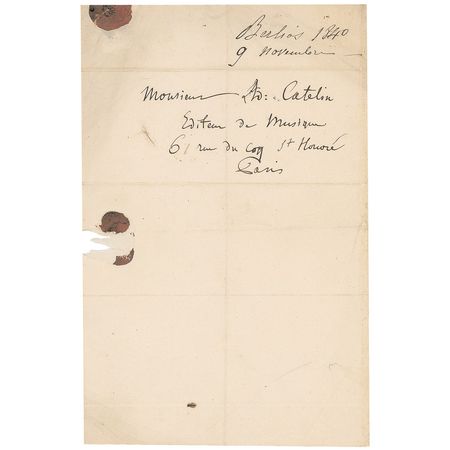 Berlios 1840
9 novembre
Monsieur Ad: Catelin
Editeur de Musique
6 rue du coq St Honoré
Paris